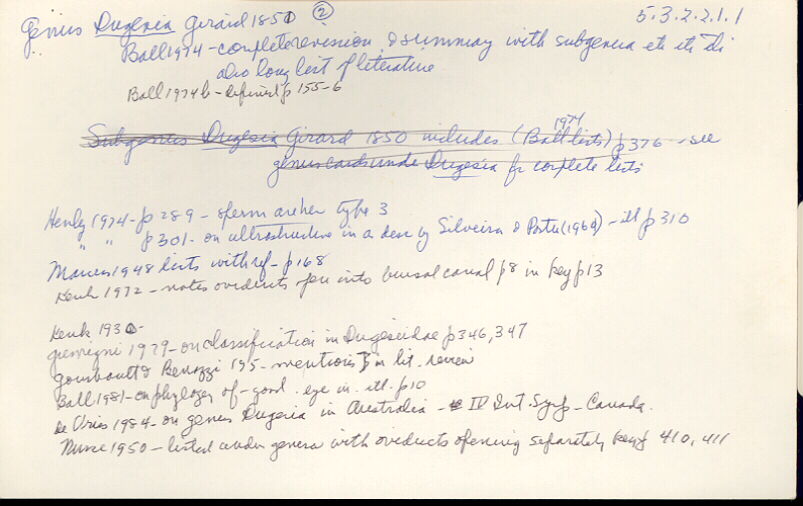 Genus Dugesia Girard 1850 ② 5.3.2.2.1.1
Ball 1974 - complete revision & summary with subgenera etc etc
also long list of literature
Ball 1974b - defined p 155-6
Subgenus Dugesia Girard 1850 includes (Ball lists) p 376 - see
1974
genus cards under Dugesia for complete lists
Henley 1974 - p 289 - sperm type 3
" " p 301 - on ultrastructure in a desc by Silveira & Porter (1964) - ill p 310
Marcus 1948 lists with ref - p 168
Kenk 1972 - notes oviducts open into bursal canal p 8 in key p 13
Kenk 1930 -
Gremigni 1979 - on classification in Dugesiidae p 346, 347
Gourbault & Benazzi - mentions in lit. review
Ball 1981 - on phylogeny of - good. eye in. ill. p 10
de Vries 1984 - on genus Dugesia in Australia - IV Int. Symp - Canada.
1950 - listed under genera with oviducts opening separately key p 410, 411